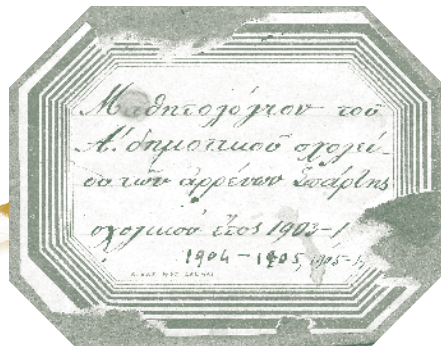 Μαθητολόγιον τοῦ
Α' δημοτικοῦ σχολεί-
ου τῶν ἀρρένων Σπάρτης
σχολικοῦ ἔτος 1903-1
1904-1905,